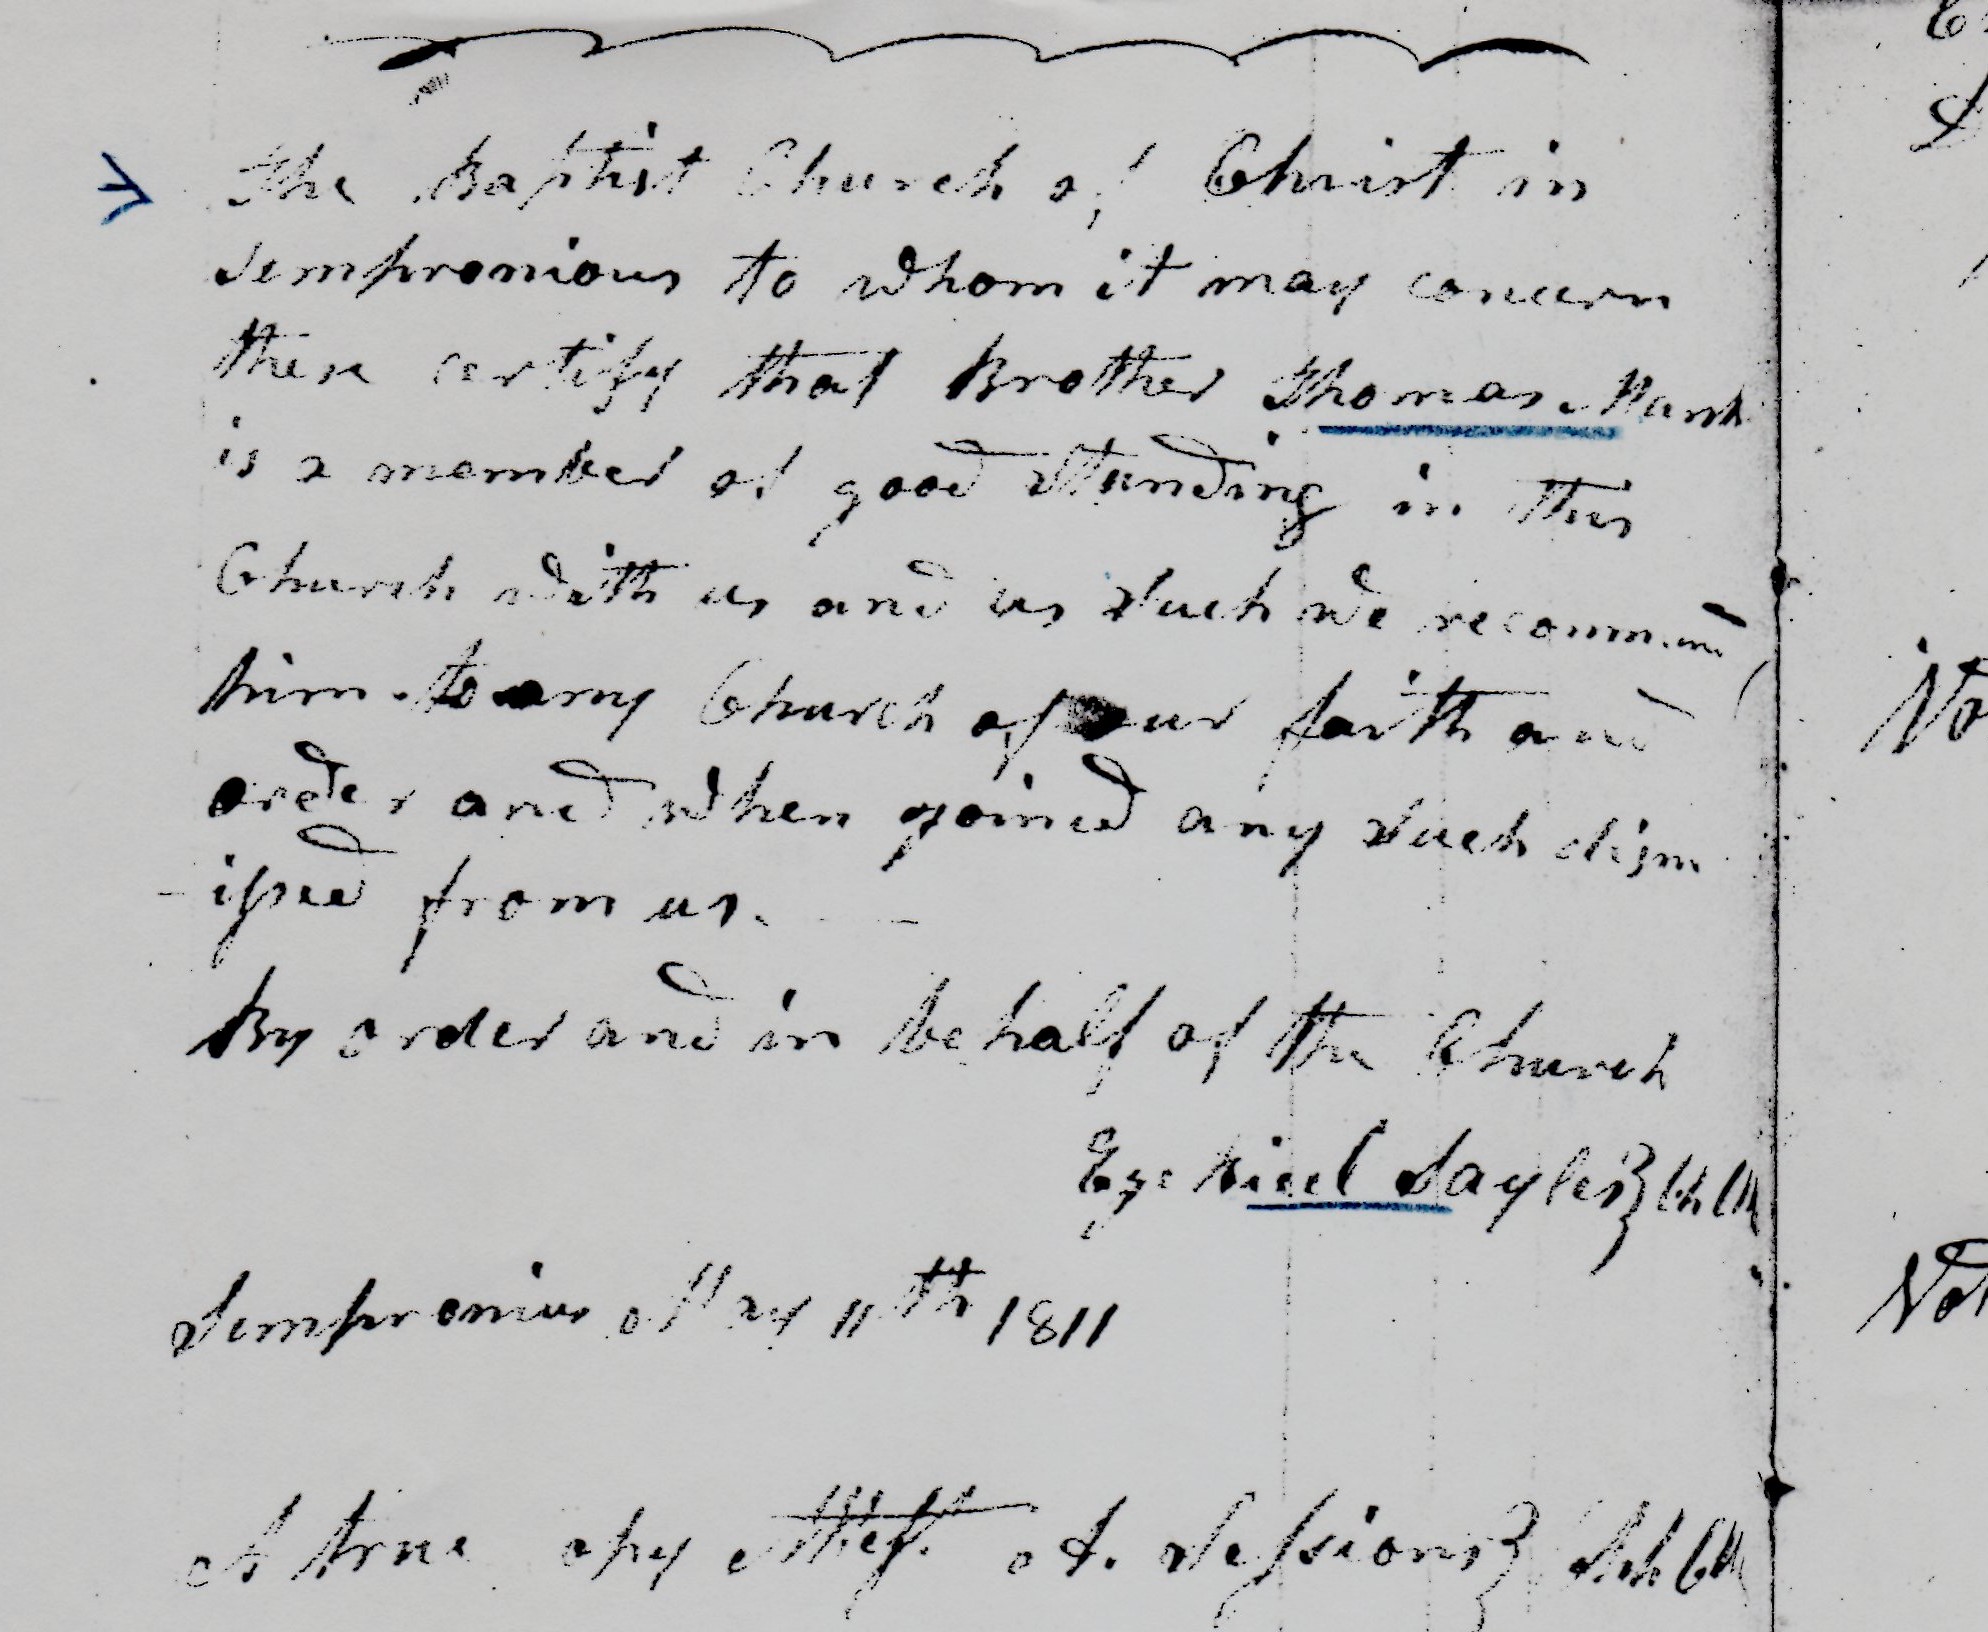 The Baptist Church of Christ in
Sempronious to whom it may concern
these certify that Brother Thomas
is a member of good standing in this
Church with us and as such we recommend
him to any Church of our faith and
order and when joined any such dism
-issed from us.
By order and in behalf of the Church
Ezekiel Sayles Ch Clk
Sempronius May 11th 1811
A true copy Attest A. Sessions Clk